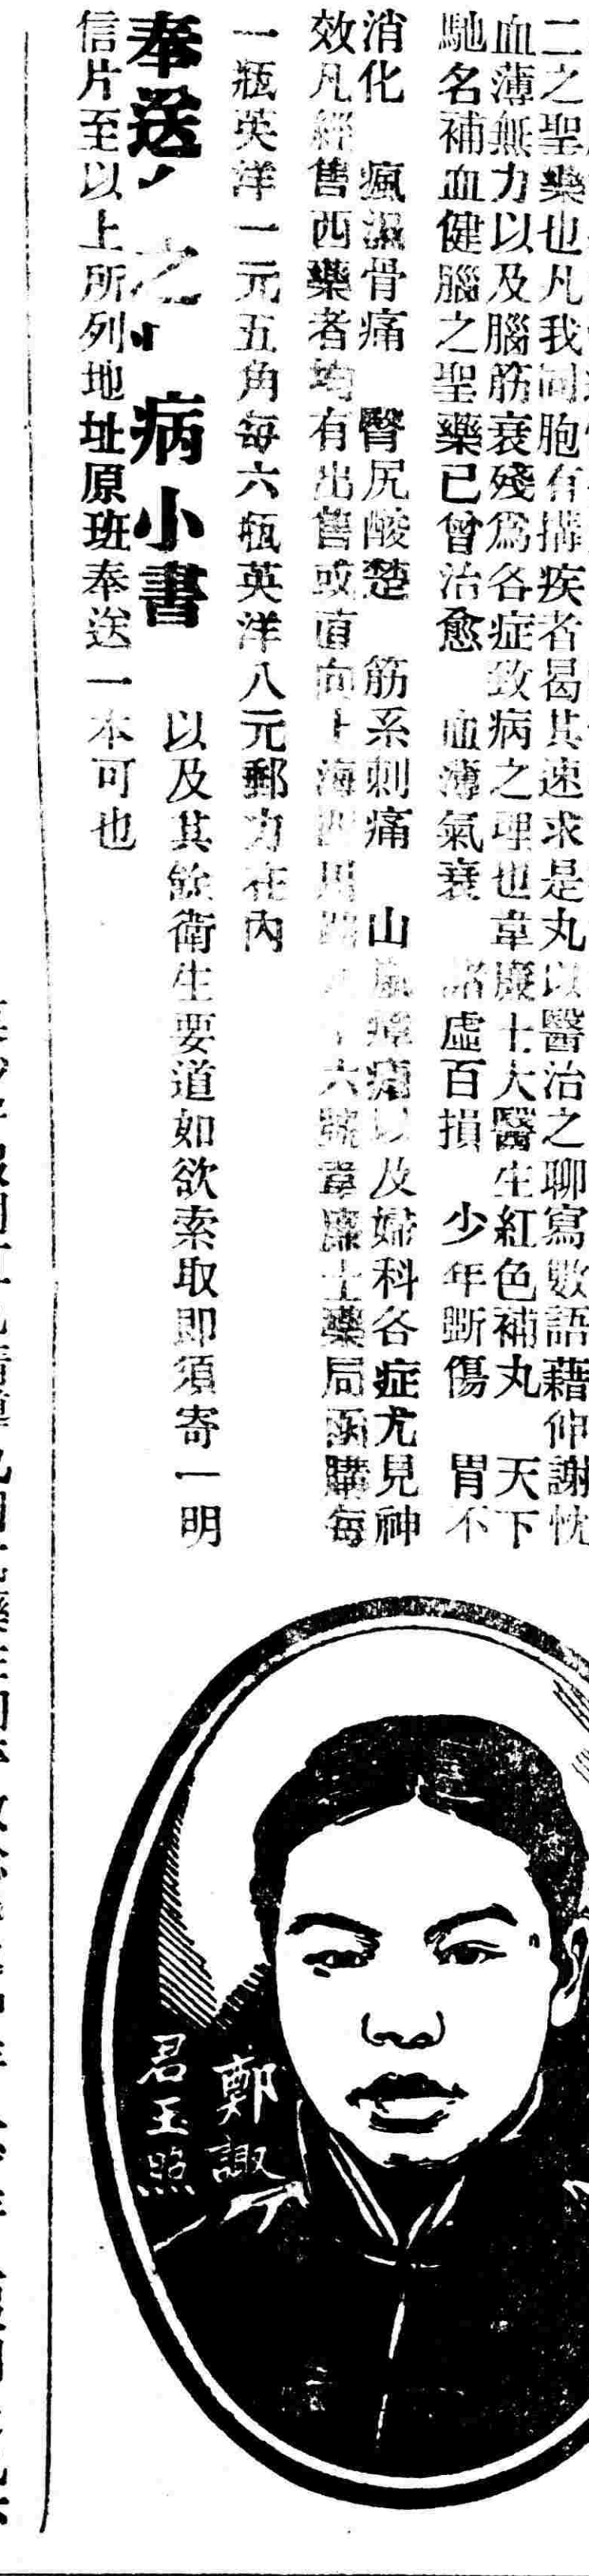 二之聖藥也凡我同胞有搆疾者曷其速求是丸以醫治之聊寫數語藉伸謝忱
血薄無力以及腦筋衰殘爲各症致病之理也韋廉士大醫生紅色補丸 天下
馳名補血健腦之聖藥已曾治愈 血薄氣衰 諸虛百損 少年斲傷 胃不
消化 瘋濕骨痛 臀尻酸楚 筋系刺痛 山嵐瘴瘧以及婦科各症尤見神
效凡經售西藥者均有出售或直向上海四川路 六號韋廉士藥局函購每
一瓶英洋一元五角每六瓶英洋八元郵力在內
奉送 之 病小書 以及其餘衛生要道如欲索取即須寄一明
信片至以上所列地址原班奉送一本可也
鄭諏
君玉照